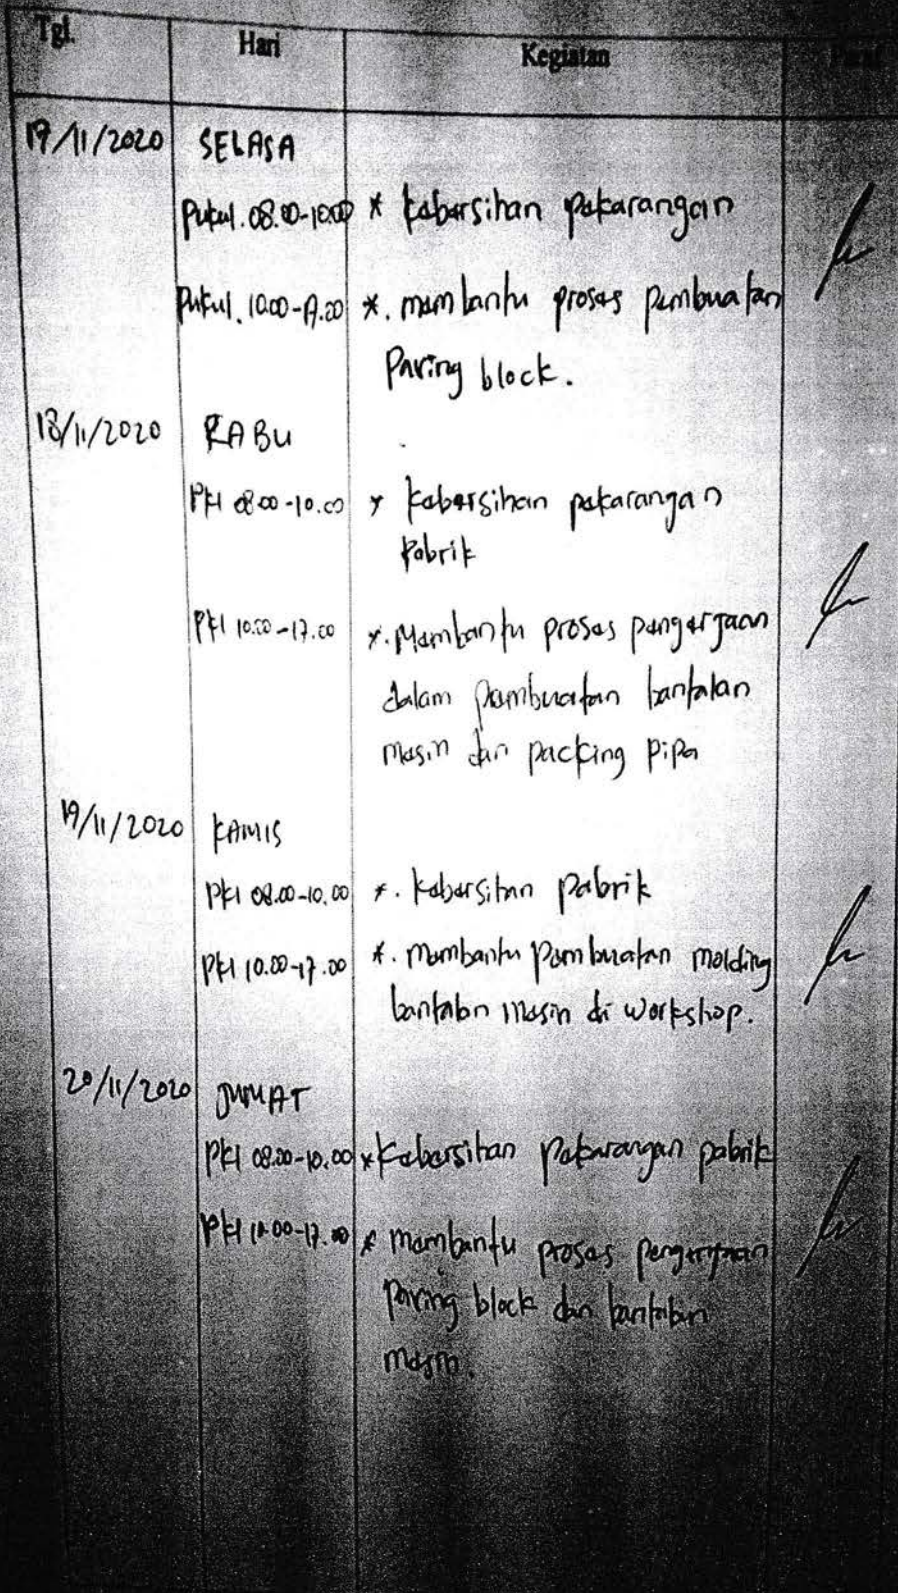 Tgl. Hari Kegiatan Paraf
17/11/2020 SELASA
Pukul. 08.00-10.00 * kebersihan pekarangan
Pukul. 10.00-17.00 *. membantu proses pembuatan
Paving block.
18/11/2020 RABU
Pkl 08.00-10.00 * kebersihan pekarangan
Pabrik
Pkl 10.00-17.00 *. Membantu proses pengerjaan
dalam pembuatan bantalan
mesin dan packing pipa
19/11/2020 KAMIS
Pkl 08.00-10.00 *. kebersihan pabrik
Pkl 10.00-17.00 *. Membantu pembuatan molding
bantalan mesin di workshop.
20/11/2020 JUMAT
Pkl 08.00-10.00 * Kebersihan pekarangan pabrik
Pkl 10.00-17.00 * membantu proses pengerjaan
Paving block dan bantalan
mesin.